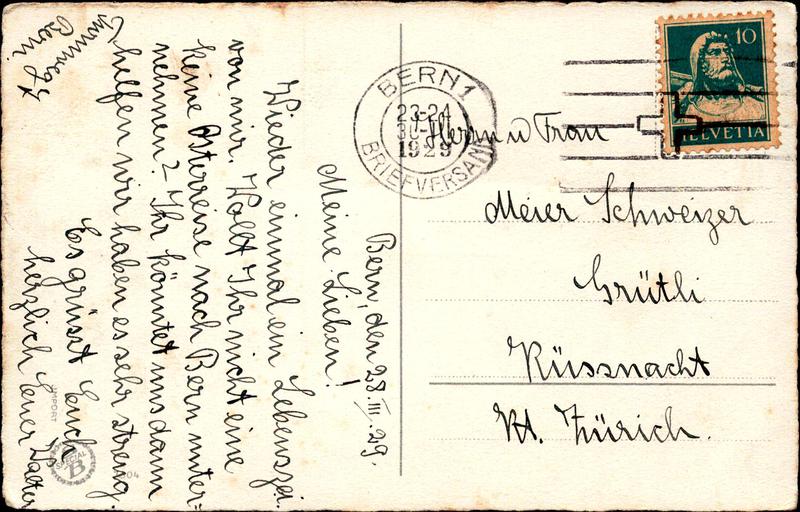 Bern, den 28. III. 29.
Meine Lieben!
Wieder einmal ein Lebenszei
von mir. Wollt Ihr nicht eine
keine Osterreise nach Bern unter=
nehmen? Ihr könntet uns dann
helfen wir haben es sehr streng.
Es grüsst Euch
herzlich Euer Walter
Bern.
BERN 1
23-24
1929
BRIEFVERSAND
10
HELVETIA
Herrn u Frau
Meier Schweizer
Grütli
Küssnacht
Kt. Zürich.
IMPORT
SPECIAL
B
04